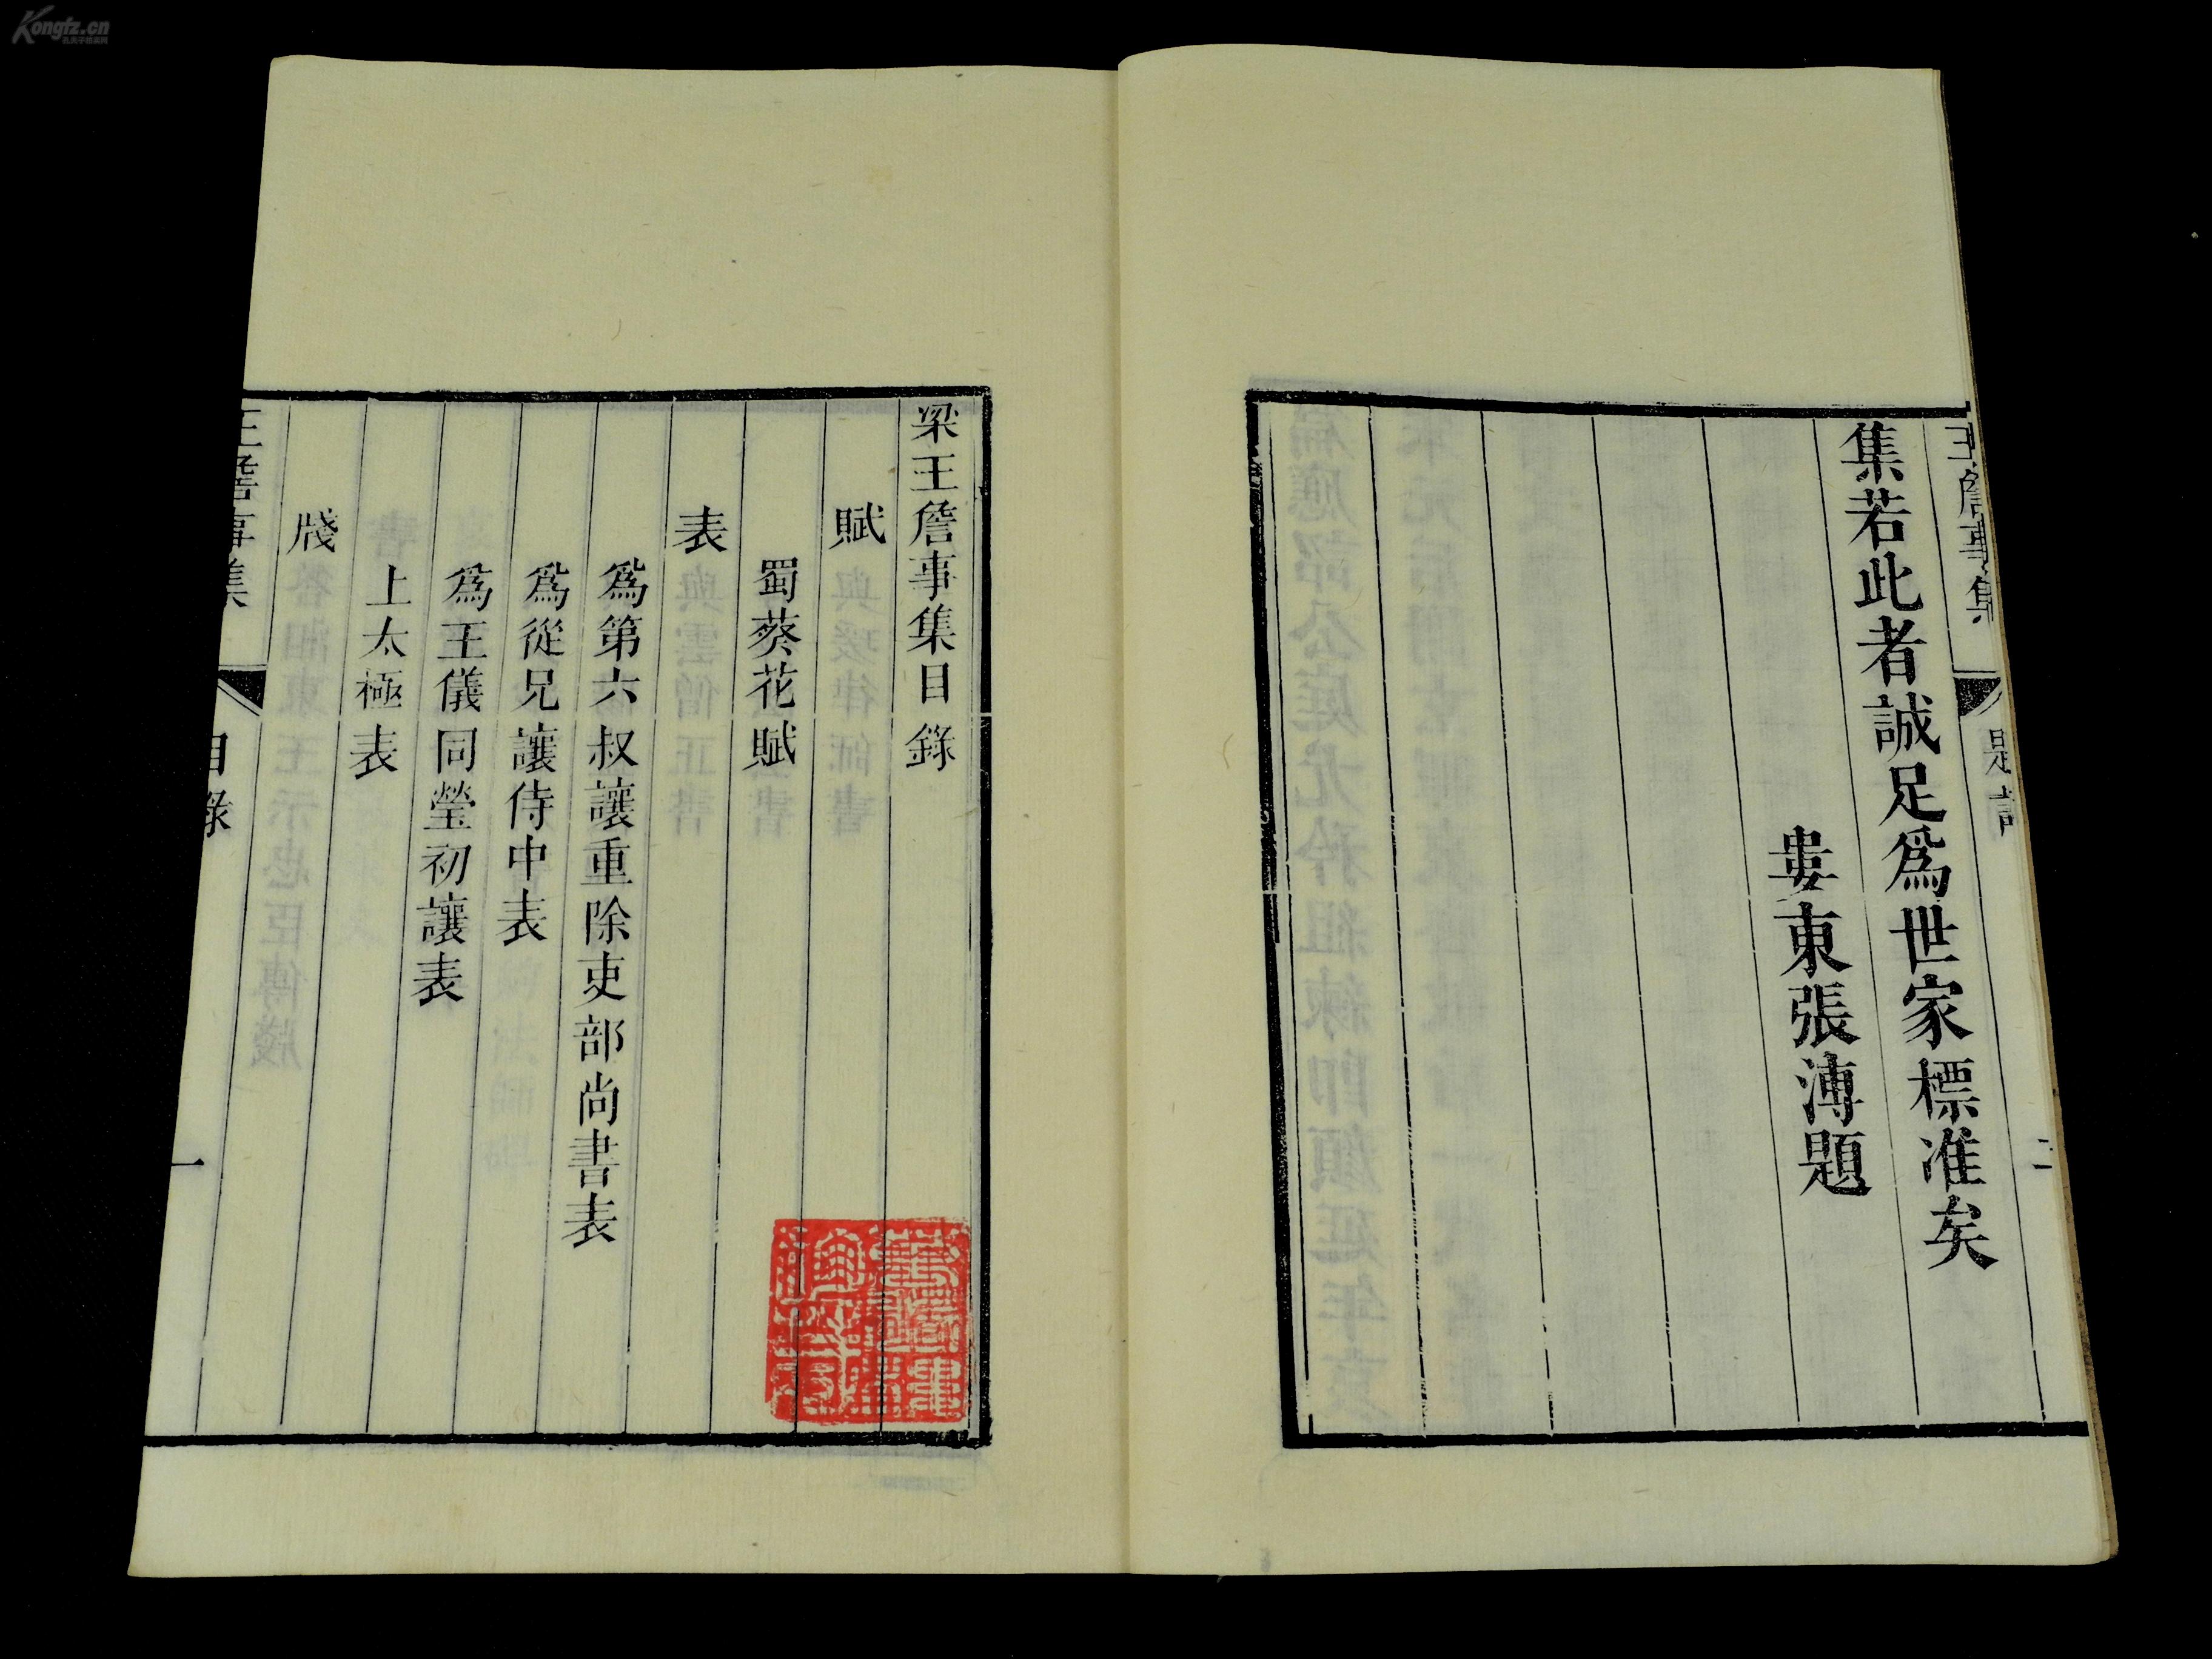 Kongfz.cn
孔夫子旧书网
王詹事集
題詞
二
集若此者誠足爲世家標准矣
婁東張溥題
梁王詹事集目錄
賦
蜀葵花賦
表
爲第六叔讓重除吏部尚書表
爲從兄讓侍中表
爲王儀同瑩初讓表
上太極表
牋
王詹事集
目錄
一